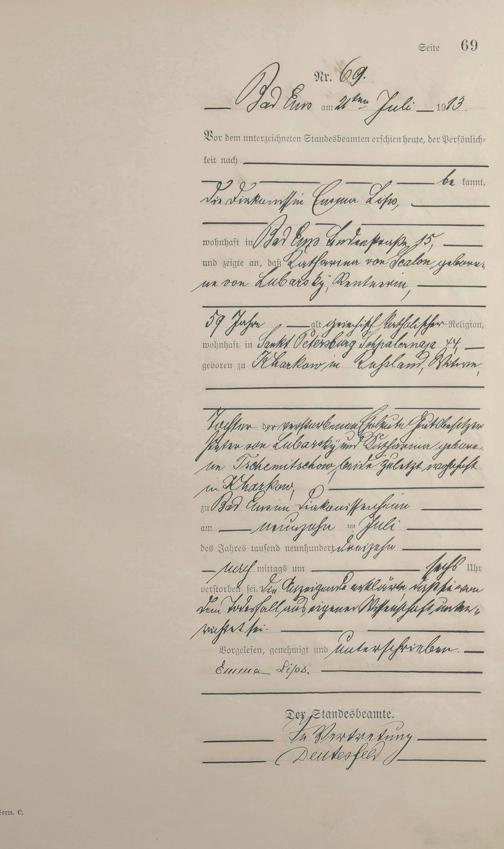 Seite 69
Nr. 69.
Bad Ems am 21ten Juli 1913
Vor dem unterzeichneten Standesbeamten erschien heute, der Persönlich-
keit nach
be kannt,
die Diakonissin Emma Lips,
wohnhaft in Bad Ems 15,
und zeigte an, daß Katharina von Scalon gebore-
ne von Lubarsky, Rentnerin,
59 Jahre alt, griechisch katholischer Religion,
wohnhaft in Sankt Petersburg 44,
geboren zu Kharkow in Russland, Witwe,
Tochter der verstorbenen Eheleute Gutsbesitzer
Peter von Lubarsky und Katharina gebore-
ne beide zuletzt wohnhaft
in Kharkow,
zu Bad Ems im Diakonissenheim
am neunzehn ten Juli
des Jahres tausend neunhundert dreizehn
nach mittags um sechs Uhr
verstorben sei. Die Anzeigende erklärte, daß sie von
dem Todesfall aus eigener Wissenschaft unter-
richtet sei.
Vorgelesen, genehmigt und unterschrieben.
Emma Lips.
Der Standesbeamte.
In Vertretung
Form. C.